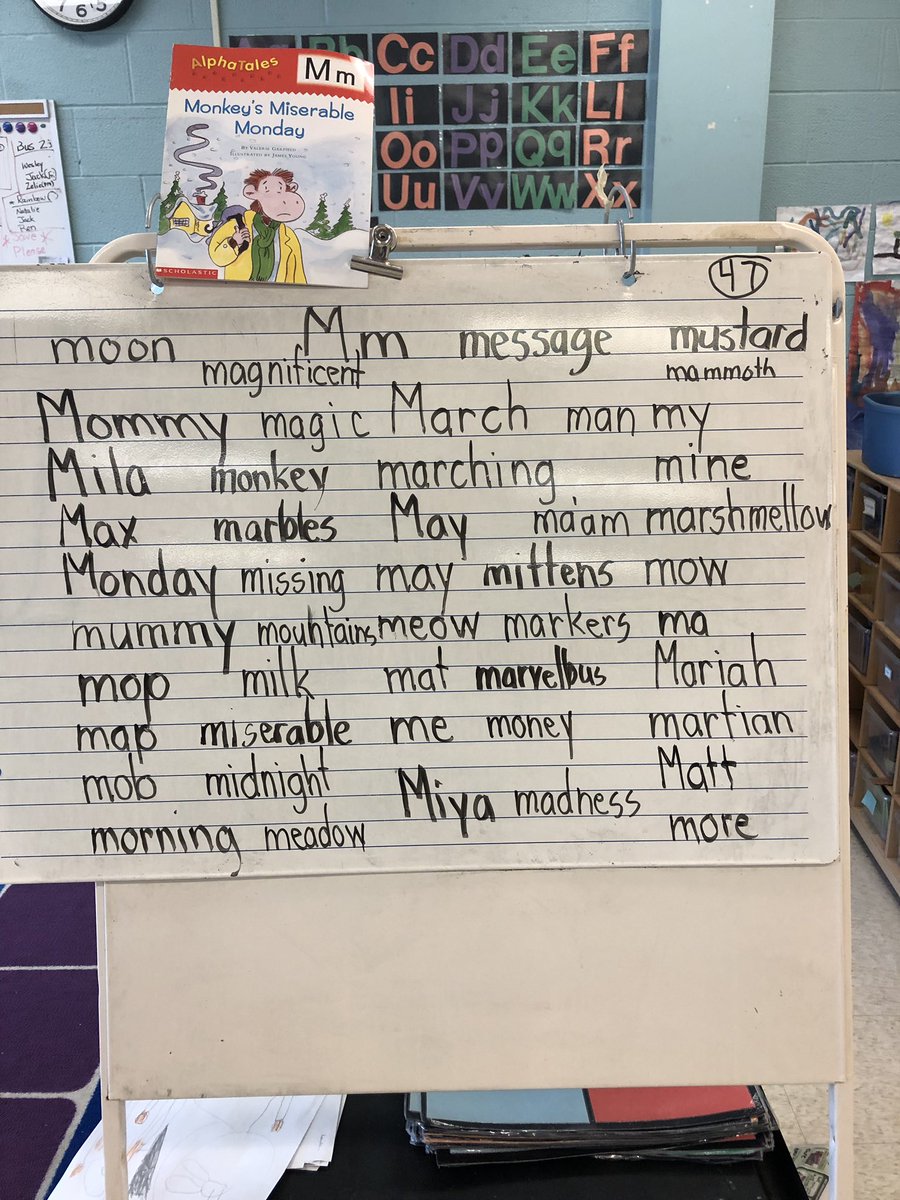 7 6 5
AlphaTales
Mm
Monkey's Miserable
Monday
BY VALERIE GARFIELD
ILLUSTRATED BY JAMES YOUNG
SCHOLASTIC
Bb Cc Dd Ee Ff
Ii Jj Kk Ll
Oo Pp Qq Rr
Uu Vv Ww Xx
BUS 23
Wesley
Jack
Rainbow
Natalie
Jack
Ben
Save
Please
47
moon Mm message mustard
magnificent mammoth
Mommy magic March man my
Mila monkey marching mine
Max marbles May ma'am marshmellow
Monday missing may mittens mow
mummy mountains meow markers ma
mop milk mat marvelous Mariah
map miserable me money martian
mob midnight Miya madness Matt
morning meadow more